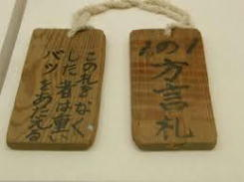 の方言札
この札をなく
した者は重い
バツをあたえる